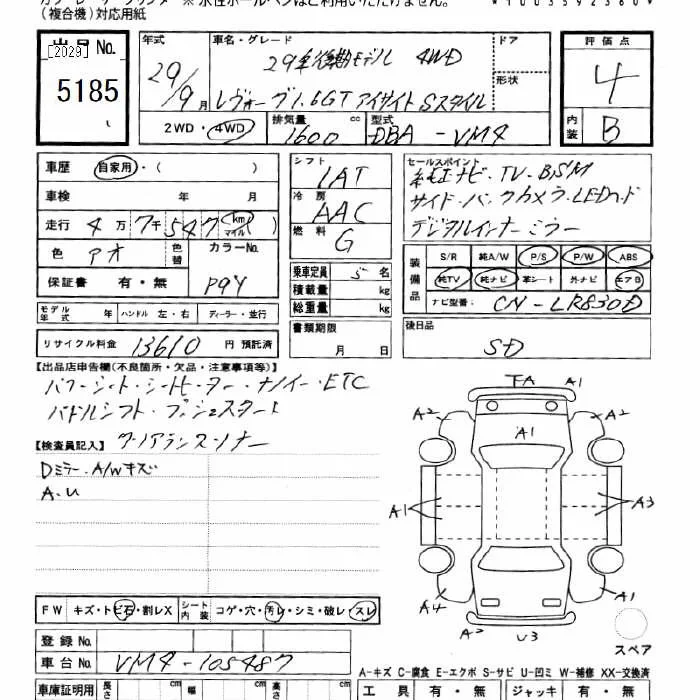 (複合機)対応用紙
出品 No. 年式 車名・グレード ドア 評価点
[2029]
5185
29/9月
29年後期モデル 4WD
レヴォーグ1.6GT アイサイト Sスタイル
形状
4
2WD・4WD 排気量 1600 cc 型式 DBA-VM4 内装 B
車歴 自家用・( ) シフト 1AT セールスポイント
純正ナビ・TV・BSM
車検 年 月 冷房 AAC サイド・バックカメラ・LEDヘッド
走行 4万7千547 km マイル ( ) 燃料 G デジタルインナーミラー
色 アオ 色替 カラーNo. P9Y
装備品 S/R 純A/W P/S P/W ABS
純TV 純ナビ 革シート 外ナビ エアB
保証書 有・無 乗車定員 5名 ナビ型番: CN-LR830D
積載量 kg
総重量 kg
モデル年式 年 ハンドル 左・右 ディーラー・並行
書類期限 月 日 後日品 SD
リサイクル料金 13610 円 預託済
【出品店申告欄(不良箇所・欠品・注意事項等)】
パワーシート・シートヒーター・ナノイー・ETC
パドルシフト・プッシュスタート
【検査員記入】 クリアランスソナー
Dミラー・A/Wキズ
A・U
A1
A2 A2
A1
A1 A3
A4 A1
A2 U3
スペア
FW キズ・トビ石・割レX シート内装 コゲ・穴・汚レ・シミ・破レ・スレ
登録 No.
車台 No. VM4-105487
A-キズ C-腐食 E-エクボ S-サビ U-凹ミ W-補修 XX-交換済
車庫証明用 長さ cm 幅 cm 高さ cm 工具 有・無 ジャッキ 有・無